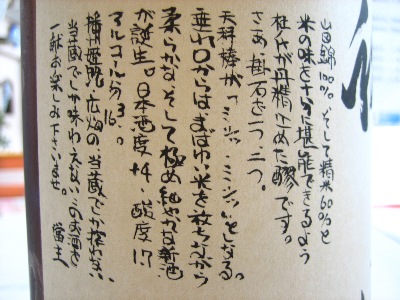 山田錦100%、そして精米60%と
米の味を十分に堪能できるよう
杜氏が丹精こめた醪です。
さあ 掛石を一つ二つ。
天秤棒が「ミシッ…ミシッ」となる。
垂れ口からはまばゆい光を放ちながら
柔らかな、そして極め細やかな新酒
が誕生。日本酒度+4、酸度1.7
アルコール分16.3
播州 広畑の当蔵でしか搾れない
当蔵でしか味わえないこのお酒を
一献お楽しみ下さいませ。 當主